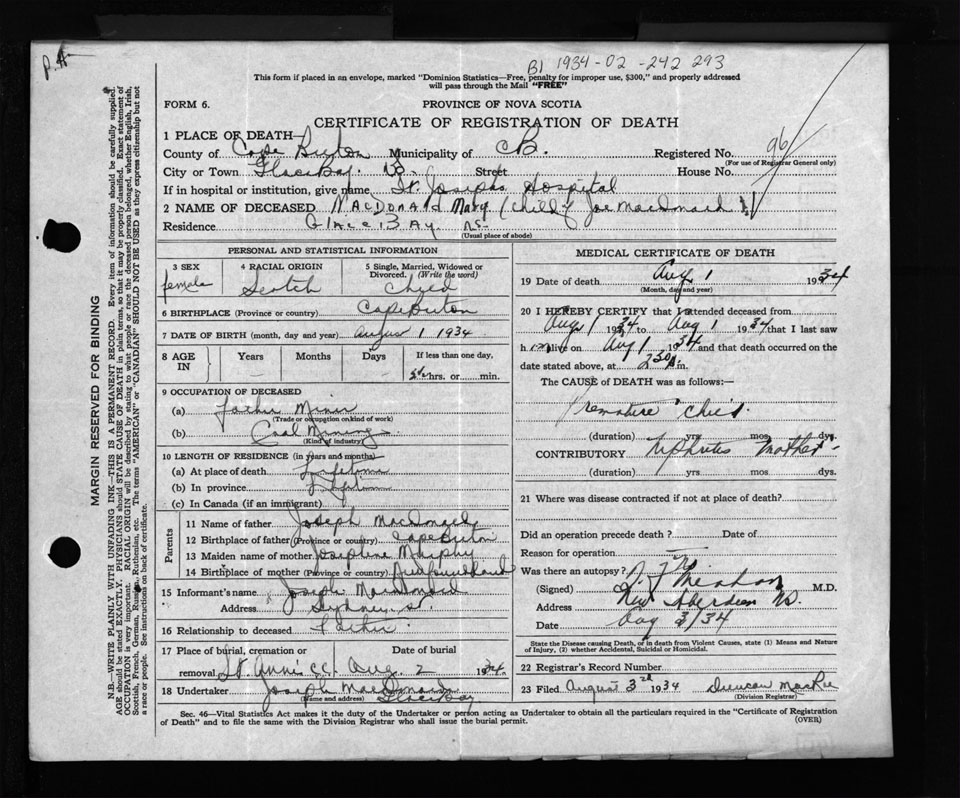 P.A
B1 1934-02-242 293
This form if placed in an envelope, marked "Dominion Statistics—Free, penalty for improper use, $300," and properly addressed
will pass through the Mail "FREE"
FORM 6.
PROVINCE OF NOVA SCOTIA
CERTIFICATE OF REGISTRATION OF DEATH
1 PLACE OF DEATH—
County of Cape Breton Municipality of CB. Registered No. 96
(For use of Registrar General only)
City or Town Glace Bay. Street House No.
If in hospital or institution, give name St. Josephs Hospital
2 NAME OF DECEASED MACDONALD Mary (child of Joe MacDonald
Residence Glace Bay. NS-
(Usual place of abode)
PERSONAL AND STATISTICAL INFORMATION
3 SEX
female
4 RACIAL ORIGIN
Scotch
5 Single, Married, Widowed or
Divorced. (Write the word)
Child
6 BIRTHPLACE (Province or country) Cape Breton
7 DATE OF BIRTH (month, day and year) August 1 1934
8 AGE
IN
Years
Months
Days
If less than one day,
hrs. or min.
9 OCCUPATION OF DECEASED
(a) Father Miner
(Trade or occupation or kind of work)
(b) Coal Mining
(Kind of industry)
10 LENGTH OF RESIDENCE (in years and months)
(a) At place of death Lifetime
(b) In province Lifetime
(c) In Canada (if an immigrant)
Parents
11 Name of father Joseph MacDonald
12 Birthplace of father (Province or country) Cape Breton
13 Maiden name of mother Josephine Murphy
14 Birthplace of mother (Province or country) Newfoundland
15 Informant's name Joseph MacDonald
Address Sydney St.
16 Relationship to deceased Father
17 Place of burial, cremation or Date of burial
removal St. Ann's CC Aug 2 1934
18 Undertaker Joseph MacDonald
(Name and address) Glace Bay
MEDICAL CERTIFICATE OF DEATH
19 Date of death Aug 1 1934
(Month, day and year)
20 I HEREBY CERTIFY that I attended deceased from
Aug 1 1934 to Aug 1 1934 that I last saw
h alive on Aug 1 1934 and that death occurred on the
date stated above, at 2 30 A m.
The CAUSE of DEATH was as follows:—
Premature child
(duration) yrs mos dys.
CONTRIBUTORY Nephritis Mother-
(duration) yrs mos dys.
21 Where was disease contracted if not at place of death?
Did an operation precede death? Date of
Reason for operation
Was there an autopsy?
(Signed) M.D.
Address New Aberdeen NS.
Date Aug 3/34
State the Disease causing Death, or in death from Violent Causes, state (1) Means and Nature
of Injury, (2) whether Accidental, Suicidal or Homicidal.
22 Registrar's Record Number
23 Filed August 3rd 1934 Duncan MacRae
(Division Registrar)
Sec. 46—Vital Statistics Act makes it the duty of the Undertaker or person acting as Undertaker to obtain all the particulars required in the "Certificate of Registration
of Death" and to file the same with the Division Registrar who shall issue the burial permit.
(OVER)
MARGIN RESERVED FOR BINDING
N.B.—WRITE PLAINLY WITH UNFADING INK—THIS IS A PERMANENT RECORD. Every item of information should be carefully supplied.
AGE should be stated EXACTLY. PHYSICIANS should STATE CAUSE OF DEATH in plain terms, so that it may be properly classified. Exact statement of
OCCUPATION is very important. RACIAL ORIGIN will be described by stating to what people or race the deceased person belonged, whether English, Irish,
Scottish, French, German, Russian, Ruthenian, etc. The terms "AMERICAN" or "CANADIAN" SHOULD NOT BE USED as they express citizenship but not
a race or people. See instructions on back of certificate.